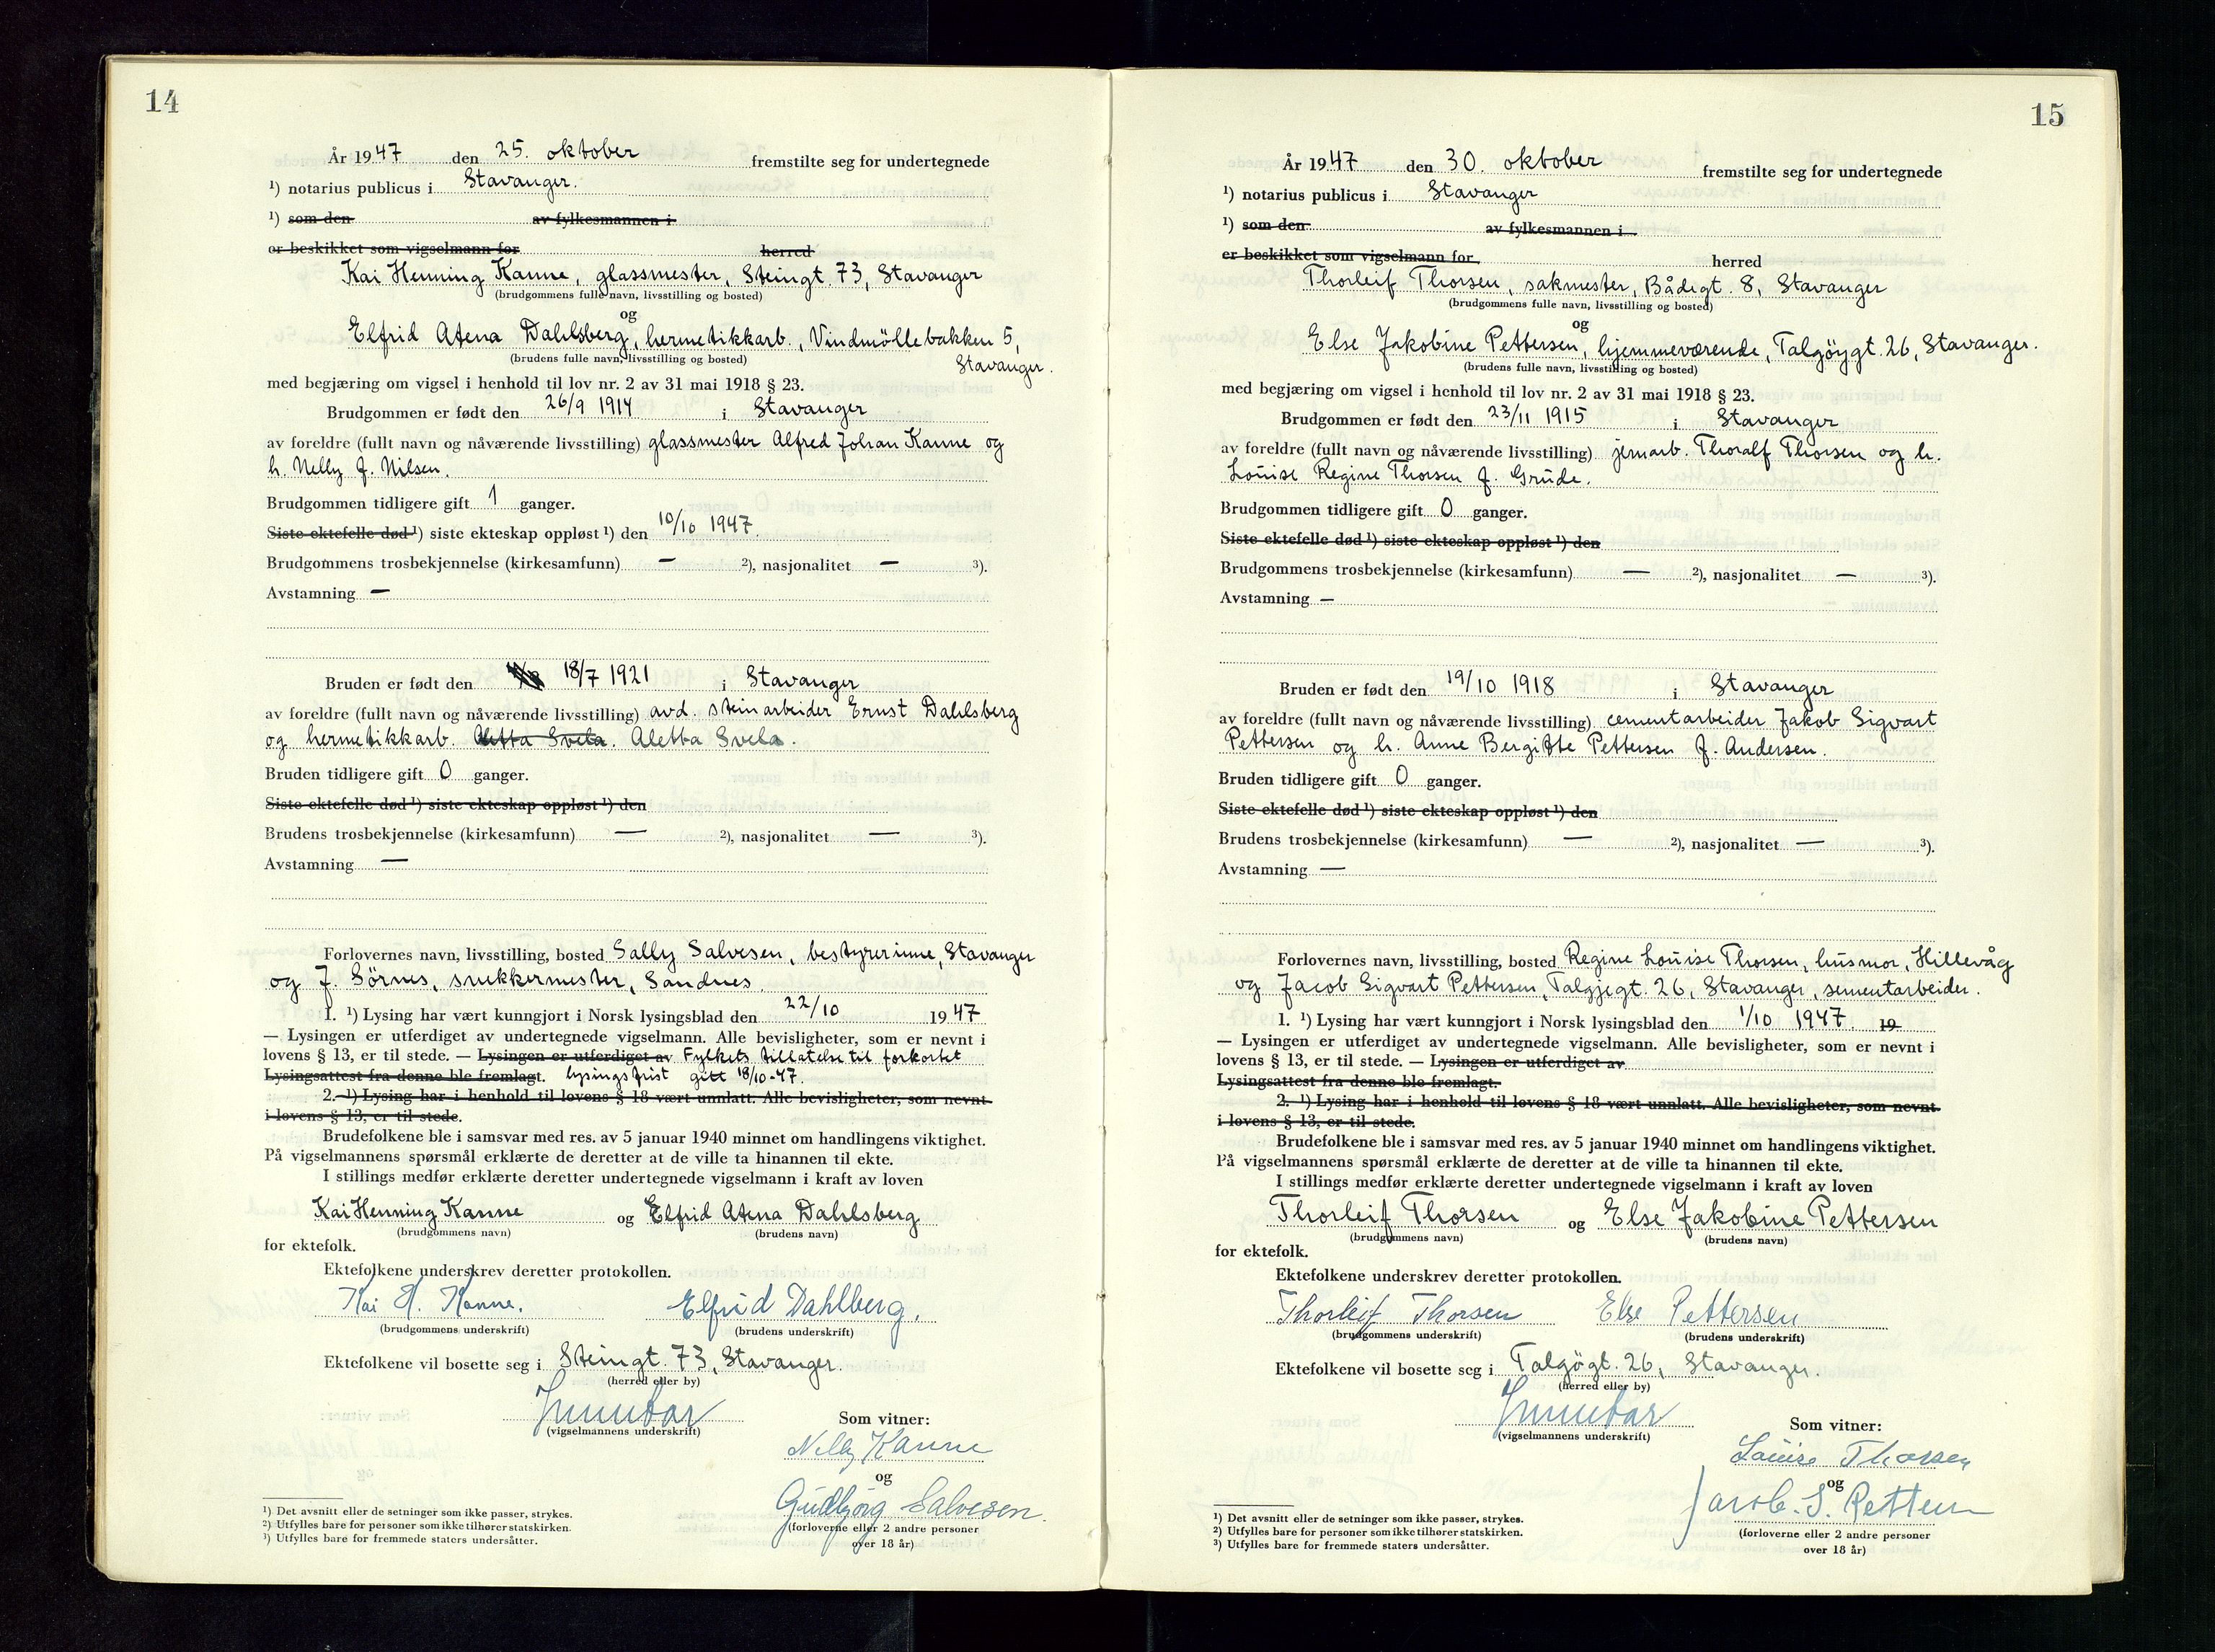 14
År 1947 den 25. oktober fremstilte seg for undertegnede
¹) notarius publicus i Stavanger.
¹) som den av fylkesmannen i
er beskikket som vigselmann for herred
Kai Henning Kanne, glassmester, Steingt. 73, Stavanger
(brudgommens fulle navn, livsstilling og bosted)
og
Elfrid Atena Dahlsberg, hermetikkarb., Vindmöllebakken 5,
(brudens fulle navn, livsstilling og bosted)
Stavanger.
med begjæring om vigsel i henhold til lov nr. 2 av 31 mai 1918 § 23.
Brudgommen er født den 26/9 1914 i Stavanger
av foreldre (fullt navn og nåværende livsstilling) glassmester Alfred Johan Kanne og
h. Nelly f. Nilsen.
Brudgommen tidligere gift 1 ganger.
Siste ektefelle død ¹) siste ekteskap oppløst ¹) den 10/10 1947.
Brudgommens trosbekjennelse (kirkesamfunn) — ²), nasjonalitet — ³).
Avstamning —
Bruden er født den 18/7 1921 i Stavanger
av foreldre (fullt navn og nåværende livsstilling) avd. steinarbeider Ernst Dahlsberg
og hermetikkarb. Aletta Svela. Aletta Svela.
Bruden tidligere gift 0 ganger.
Siste ektefelle død ¹) siste ekteskap oppløst ¹) den
Brudens trosbekjennelse (kirkesamfunn) — ²), nasjonalitet — ³).
Avstamning —
Forlovernes navn, livsstilling, bosted Sally Salvesen, bestyrerinne, Stavanger
og J. Sörnes, snekkermester, Sandnes.
1. ¹) Lysing har vært kunngjort i Norsk lysingsblad den 22/10 1947
— Lysingen er utferdiget av undertegnede vigselmann. Alle bevisligheter, som er nevnt i
lovens § 13, er til stede. — Lysingen er utferdiget av Fylkets tillatelse til forkortet
Lysingsattest fra denne ble fremlagt. lysingsfrist gitt 18/10-47.
2. ¹) Lysing har i henhold til lovens § 18 vært unnlatt. Alle bevisligheter, som nevnt
i lovens § 13, er til stede.
Brudefolkene ble i samsvar med res. av 5 januar 1940 minnet om handlingens viktighet.
På vigselmannens spørsmål erklærte de deretter at de ville ta hinannen til ekte.
I stillings medfør erklærte deretter undertegnede vigselmann i kraft av loven
Kai Henning Kanne og Elfrid Atena Dahlsberg
(brudgommens navn) (brudens navn)
for ektefolk.
Ektefolkene underskrev deretter protokollen.
Kai H. Kanne. Elfrid Dahlberg.
(brudgommens underskrift) (brudens underskrift)
Ektefolkene vil bosette seg i Steingt. 73, Stavanger.
(herred eller by)
(vigselmannens underskrift)
Som vitner:
Nelly Kanne
og
Gudbjörg Salvesen.
(forloverne eller 2 andre personer
over 18 år)
¹) Det avsnitt eller de setninger som ikke passer, strykes.
²) Utfylles bare for personer som ikke tilhører statskirken.
³) Utfylles bare for fremmede staters undersåtter.
15
År 1947 den 30. oktober fremstilte seg for undertegnede
¹) notarius publicus i Stavanger
¹) som den av fylkesmannen i
er beskikket som vigselmann for herred
Thorleif Thorsen, sakmester, Bådigt. 8, Stavanger
(brudgommens fulle navn, livsstilling og bosted)
og
Else Jakobine Pettersen, hjemmeværende, Talgöygt. 26, Stavanger.
(brudens fulle navn, livsstilling og bosted)
med begjæring om vigsel i henhold til lov nr. 2 av 31 mai 1918 § 23.
Brudgommen er født den 23/11 1915 i Stavanger
av foreldre (fullt navn og nåværende livsstilling) jernarb. Thoralf Thorsen og h.
Louise Regine Thorsen f. Grude.
Brudgommen tidligere gift 0 ganger.
Siste ektefelle død ¹) siste ekteskap oppløst ¹) den
Brudgommens trosbekjennelse (kirkesamfunn) — ²), nasjonalitet — ³).
Avstamning —
Bruden er født den 19/10 1918 i Stavanger
av foreldre (fullt navn og nåværende livsstilling) cementarbeider Jakob Sigvart
Pettersen og h. Anne Bergitte Pettersen f. Andersen.
Bruden tidligere gift 0 ganger.
Siste ektefelle død ¹) siste ekteskap oppløst ¹) den
Brudens trosbekjennelse (kirkesamfunn) — ²), nasjonalitet — ³).
Avstamning —
Forlovernes navn, livsstilling, bosted Regine Louise Thorsen, husmor, Hillevåg
og Jacob Sigvart Pettersen, Talgjegt. 26, Stavanger, sementarbeider.
1. ¹) Lysing har vært kunngjort i Norsk lysingsblad den 1/10 1947. 19
— Lysingen er utferdiget av undertegnede vigselmann. Alle bevisligheter, som er nevnt i
lovens § 13, er til stede. — Lysingen er utferdiget av
Lysingsattest fra denne ble fremlagt.
2. ¹) Lysing har i henhold til lovens § 18 vært unnlatt. Alle bevisligheter, som nevnt
i lovens § 13, er til stede.
Brudefolkene ble i samsvar med res. av 5 januar 1940 minnet om handlingens viktighet.
På vigselmannens spørsmål erklærte de deretter at de ville ta hinannen til ekte.
I stillings medfør erklærte deretter undertegnede vigselmann i kraft av loven
Thorleif Thorsen og Else Jakobine Pettersen
(brudgommens navn) (brudens navn)
for ektefolk.
Ektefolkene underskrev deretter protokollen.
Thorleif Thorsen Else Pettersen
(brudgommens underskrift) (brudens underskrift)
Ektefolkene vil bosette seg i Talgögt. 26, Stavanger.
(herred eller by)
(vigselmannens underskrift)
Som vitner:
Louise Thorsen
og
Jacob. S. Pettersen
(forloverne eller 2 andre personer
over 18 år)
¹) Det avsnitt eller de setninger som ikke passer, strykes.
²) Utfylles bare for personer som ikke tilhører statskirken.
³) Utfylles bare for fremmede staters undersåtter.